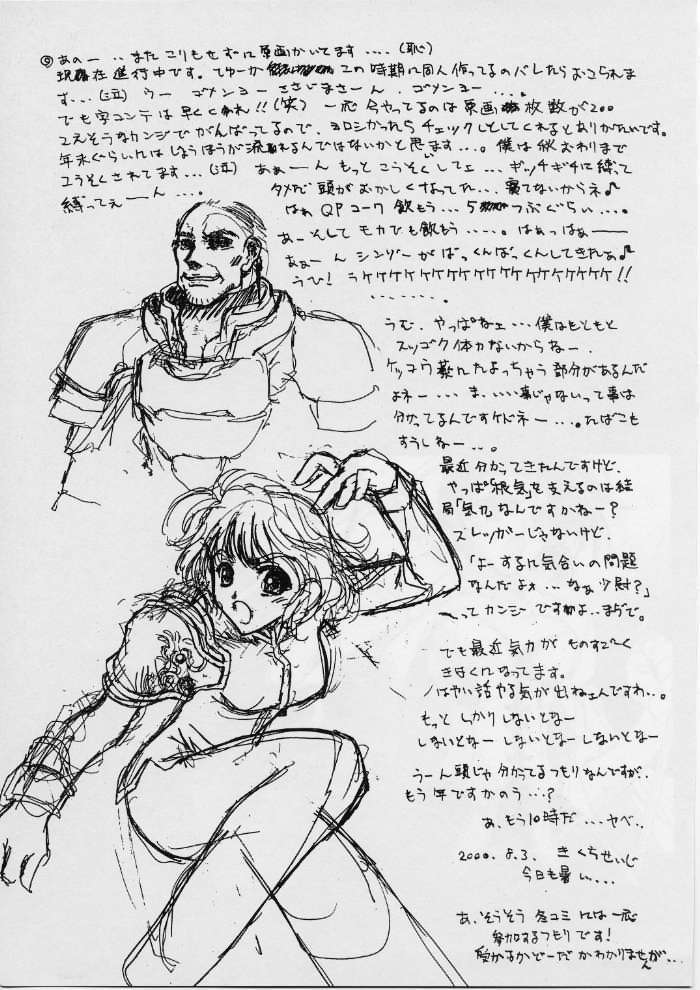 ◎あのー‥またこりもせずに原画かいてます‥‥(恥)
現在進行中です。てゆーか この時期に同人作ってるのバレたらおこられま
す‥‥(泣) うー ゴメンヨー さきじまさーん . ゴメンヨー‥‥。
でも字コンテは早くくれ!!(笑) 一応今やってるのは原画枚数が200
こえそうなカンジでがんばってるので、ヨロシかったらチェックしとしてくれるとありがたいです。
年末ぐらいにはじょうほうが流れるんではないかと思います‥‥。僕は秋おわりまで
こうそくされてます‥‥(泣) あぁーん もっと こうそくしてェ‥‥ギッチギチに縛って
縛ってぇーん‥‥。
ダメだ頭がおかしくなってた‥‥寝てないからネ♪
はぁ QPコーワ 飲もう‥‥5つぶぐらい‥‥。
あーそしてモカでも飲もう‥‥‥。はぁっはぁー
あぁーん シンゾーが ばっくんばっくんしてきたぁ♪
うひ! ラケケケケケケケケケケケケケケケケ!!
‥‥‥‥。
うむ、やっぱねェ‥‥僕はもともと
スッゴク体力ないからねー.
ケッコウ薬にたよっちゃう部分があるんだ
よネー‥‥ま、いい事じゃないって事は
分かってるんですケドネー‥‥。たばこも
すうしねー‥‥。
最近分かってきたんですけど、
やっぱ「根気」を支えるのは結
局「気力」なんですかねー?
スレッガーじゃないけど、
「よーするに気合いの問題
なんだよォ‥‥なぁ少尉?」
〜ってカンジですわよ‥まぢで。
でも最近気力が ものすご〜く
きはくになってます。
はやい話やる気が出ねェんですわ‥。
もっと しっかりしないとなー
しないとなー しないとなー しないとなー
うーん頭じゃ分かってるつもりなんですが‥
もう年ですかのう‥‥?
あ、もう10時だ‥‥ヤベ‥
2000. 8.3. きくちせいじ
今日も暑い‥‥
あ、そうそう 冬コミには一応
参加するつもりです!
受かるかどーだかわかりませんが‥‥